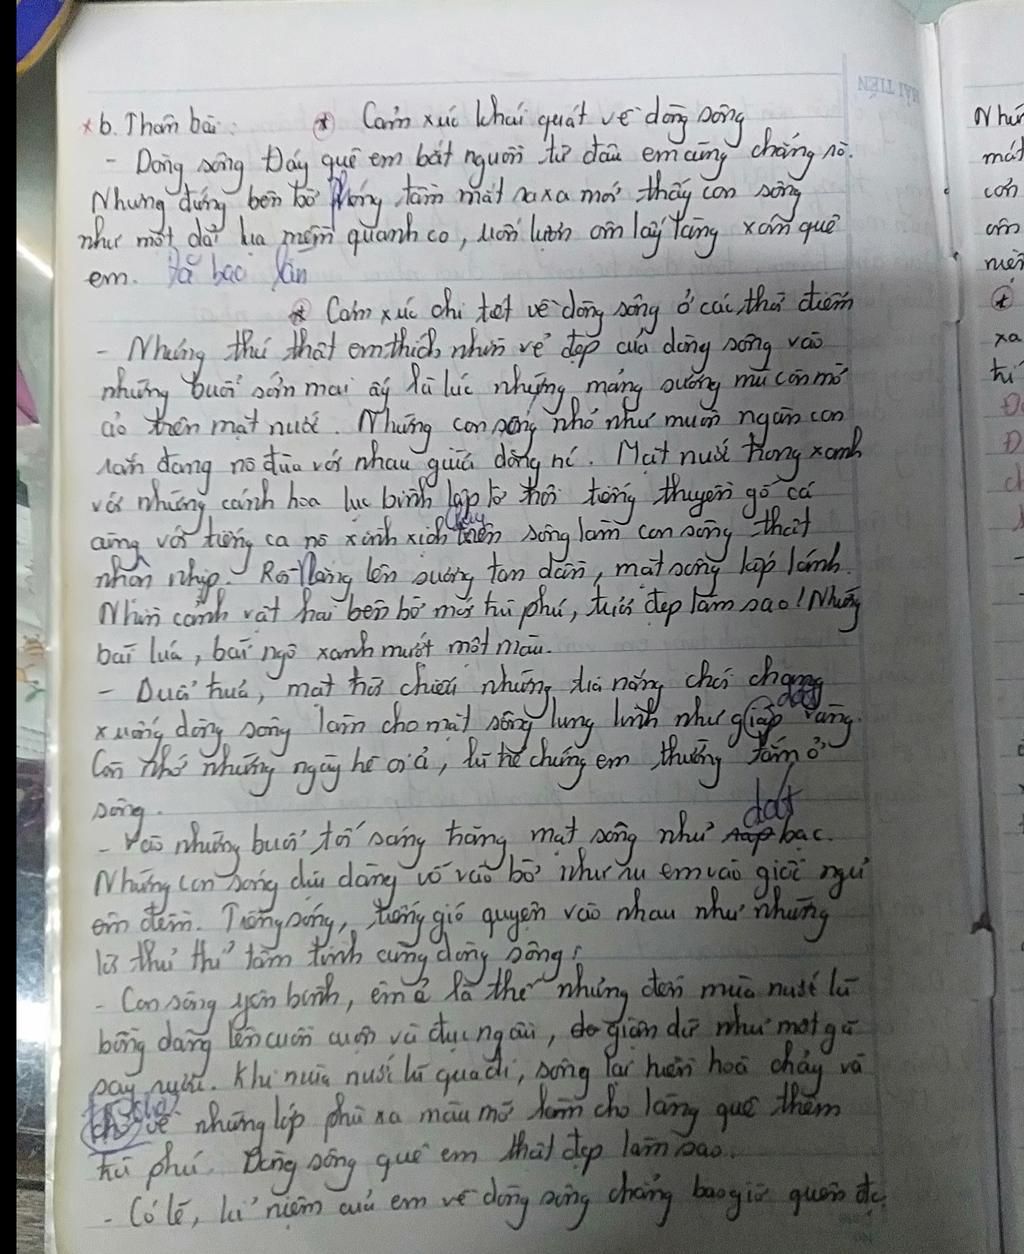 * b. Thân bài: * Cảm xúc khái quát về dòng sông
- Dòng sông Đáy quê em bắt nguồn từ đâu em cũng chẳng rõ.
Nhưng đứng bên bờ phóng tầm mắt ra xa mới thấy con sông
như một dải lụa mềm quanh co, uốn lượn ôm lấy làng xóm quê
em. Đã bao lần
* Cảm xúc chi tiết về dòng sông ở các thời điểm
- Nhưng thú thật em thích nhìn vẻ đẹp của dòng sông vào
những buổi sớm mai ấy là lúc những mảng sương mù còn mờ
ảo trên mặt nước. Những con sóng nhỏ như muôn ngàn con
rắn đang nô đùa với nhau giữa dòng nước. Mặt nước trong xanh
với những cánh hoa lục bình lập lờ trôi tiếng thuyền gõ cá
cùng với tiếng ca nô xình xịch chạy trên sông làm con sông thật
nhộn nhịp. Rồi nắng lên sương tan dần, mặt sông lấp lánh.
Nhìn cảnh vật hai bên bờ mới trù phú, tươi đẹp làm sao! Những
bãi lúa, bãi ngô xanh mướt một màu.
- Buổi trưa, mặt trời chiếu những tia nắng chói chang
xuống dòng sông làm cho mặt sông lung linh như giáp dát vàng.
Còn nhớ những ngày hè oi ả, lũ trẻ chúng em thường tắm ở
sông.
- Vào những buổi tối sáng trăng mặt sông như dát bạc.
Những con sóng dịu dàng vỗ vào bờ như ru em vào giấc ngủ
êm đềm. Tiếng sóng, tiếng gió quyện vào nhau như những
lời thủ thỉ tâm tình cùng dòng sông!
- Con sông yên bình, êm ả là thế nhưng đến mùa nước lũ
bỗng dâng lên cuồn cuộn và đục ngầu, giận dữ như một gã
say rượu. Khi mùa nước lũ qua đi, sông lại hiền hoà chảy và
về những lớp phù xa màu mỡ làm cho làng quê thêm
trù phú. Dòng sông quê em thật đẹp làm sao.
- Có lẽ, kỉ niệm của em về dòng sông chẳng bao giờ quên đc
Như
mát
con
ôm
xa